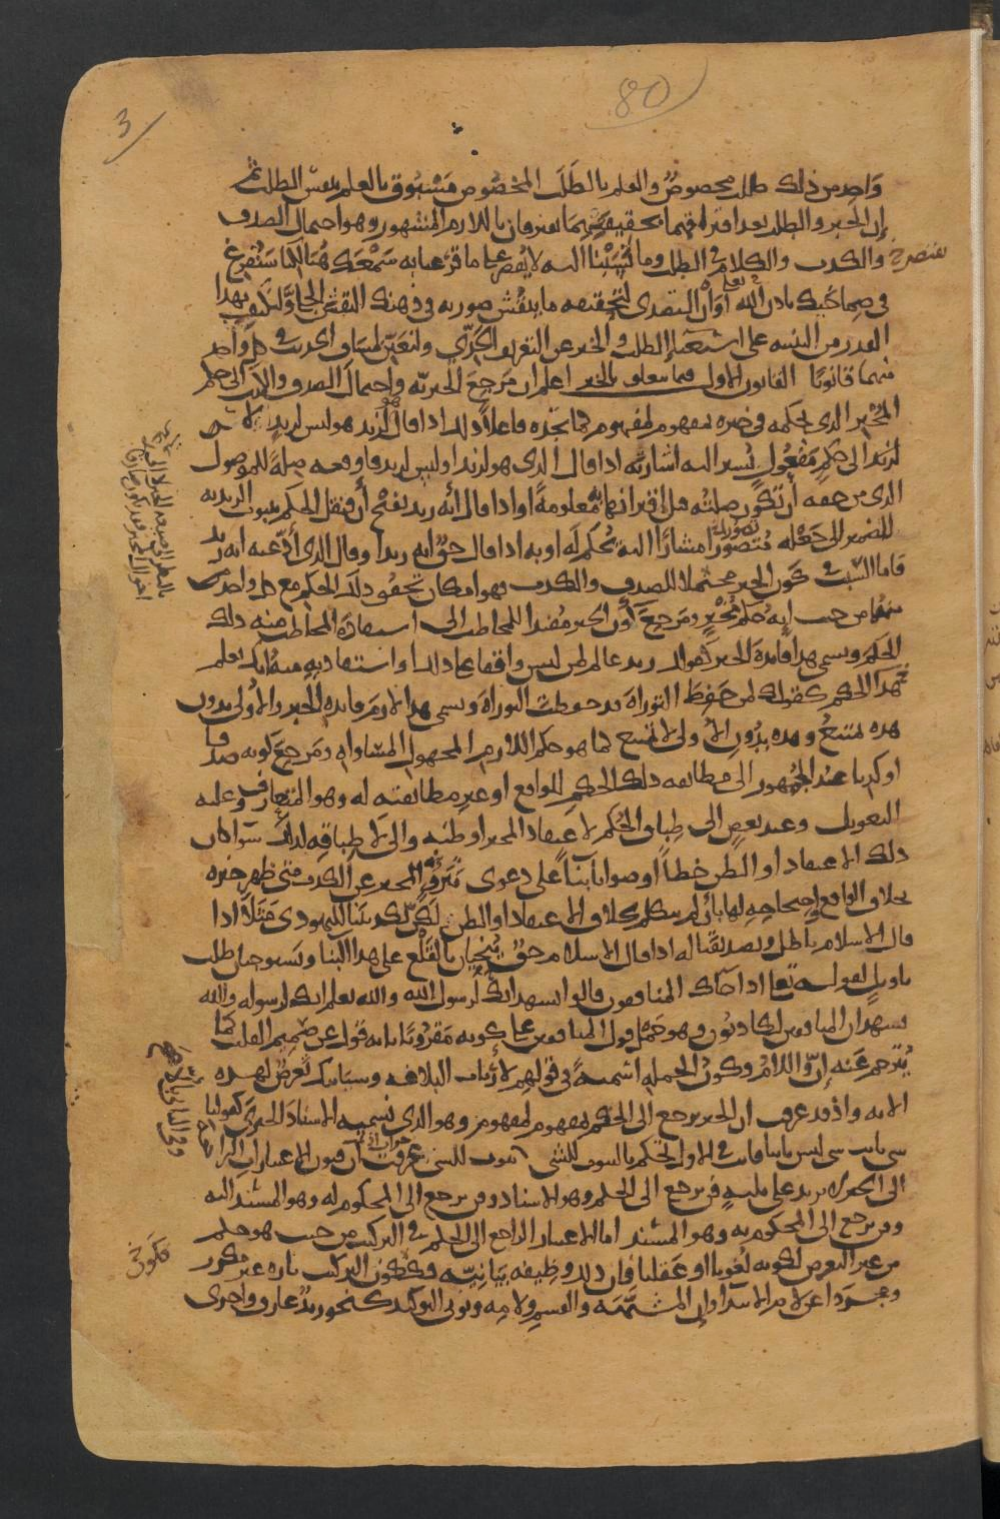 80
3
واحد من ذلك طلب مخصوص والعلم بالطلب المخصوص مسبوق بالعلم بنفس الطلب ثم
إن الخبر والطلب بعد افتراقهما بحقيقتيهما يفترقان باللازم المشهور وهو احتمال الصدق
والكذب والكلام في الطلب وما نيبنا اليه لا يقصر عما قرعنا به سمعك هنا لكنا سنفرغ
في صماخيك باذن الله تعالى أوان التصدي لتحقيقه ما ينقش صورته في ذهنك النقش الجلي ولنكتف بهذا
القدر من التنبيه على استغناء الطلب والخبر عن التعريف الحدي ولنعين لسياق الحديث في كل واحد
منهما قانونا القانون الاول فيما يتعلق بالخبر اعلم ان مرجع الخبرية واحتمال الصدق والكذب الى حكم
المخبر الذي يحكمه في خبره بمفهوم لمفهوم كما تجده فاعلا ذلك اذا قال هو لزيد هو ليس لزيد لا
لزيد الى حكم مفعول يشير اليه اشارته اذا قال الذي هو لزيد او ليس لزيد فاوقعه صلة للموصول
الذي من حقه أن تكون صلته قبل اقترانها به معلومة او اذا قال أنه زيد بفتح أن فنقل الحكم بثبوت الزيدية
للضمير الى جعله تصورا مشارا اليه يحكم له او به اذا قال حق انه زيد او قال الذي أدعيه انه زيد
فاما السبب في كون الخبر محتملا للصدق والكذب فهو امكان تحقق ذلك الحكم مع كل واحد
منهما من حيث انه حكم مخبر ومرجع كون الخبر مفيدا للمخاطب الى استفادة المخاطب منه ذلك
الحكم ويسمى هذا فائدة الخبر كقولك زيد عالم لمن ليس واقفا على ذلك او استفادته منه أنك تعلم
ذلك كقولك لمن حفظ التوراة قد حفظت التوراة ويسمى هذا لازم فائدة الخبر والأولى بدون
هذه تمتنع وهذه بدون الأولى لا تمتنع كما هو حكم اللازم المجهول المساواة ومرجع كونه صدقا
او كذبا عند الجمهور الى مطابقة ذلك الحكم للواقع او غير مطابقته له وهو المتعارف وعليه
التعويل وعند بعض الى طباق الحكم لاعتقاد المخبر او ظنه والى لا طباقه لذلك سواء كان
ذلك الاعتقاد او الظن خطأ او صوابا بناء على دعوى تبرؤ المخبر عن الكذب متى ظهر خبره
بخلاف الواقع واحتجاجه لها بأن لم يتكلم بخلاف الاعتقاد او الظن لكن تكذيبنا لليهودي مثلا اذا
قال الاسلام باطل وتصديقنا له اذا قال الاسلام حق ينحيان بالقلع على هذا البناء ويستوجبان طلب
تاويل لقوله تعالى اذا جآك المنافقون قالوا نشهد انك لرسول الله والله يعلم انك لرسوله والله
يشهد ان المنافقين لكاذبون وهو حمل قول المنافقين على كونه مقرونا بانه قول عن صميم القلب كما
يترجم عنه إن واللام وكون الجملة اسمية في قولهم لأرباب البلاغة وسيأتيك تعرض لهذه
الاية واذ قد عرفت ان الخبر يرجع الى الحكم بمفهوم لمفهوم وهو الذي نسميه الاسناد الخبري كقولنا
شي ثابت شي ليس ثابتا فانت في الاول تحكم بالثبوت للشي عرفت أن فنون الاعتبارات الراجعة
الى الخبر لا تزيد على ثلثة فن يرجع الى الحكم وهو الاسناد وفن يرجع الى المحكوم له وهو المسند اليه
وفن يرجع الى المحكوم به وهو المسند اما الاعتبار الراجع الى الحكم في التركيب من حيث هو حكم
من غير التعرض لكونه لغويا او عقليا فان ذلك وظيفة بيانية فككون التركيب تارة غير مكرر
ومجردا عن لام الابتدا وإن المشبهة والقسم ولامه ونوني التوكيد كنحو زيد عارف واخرى